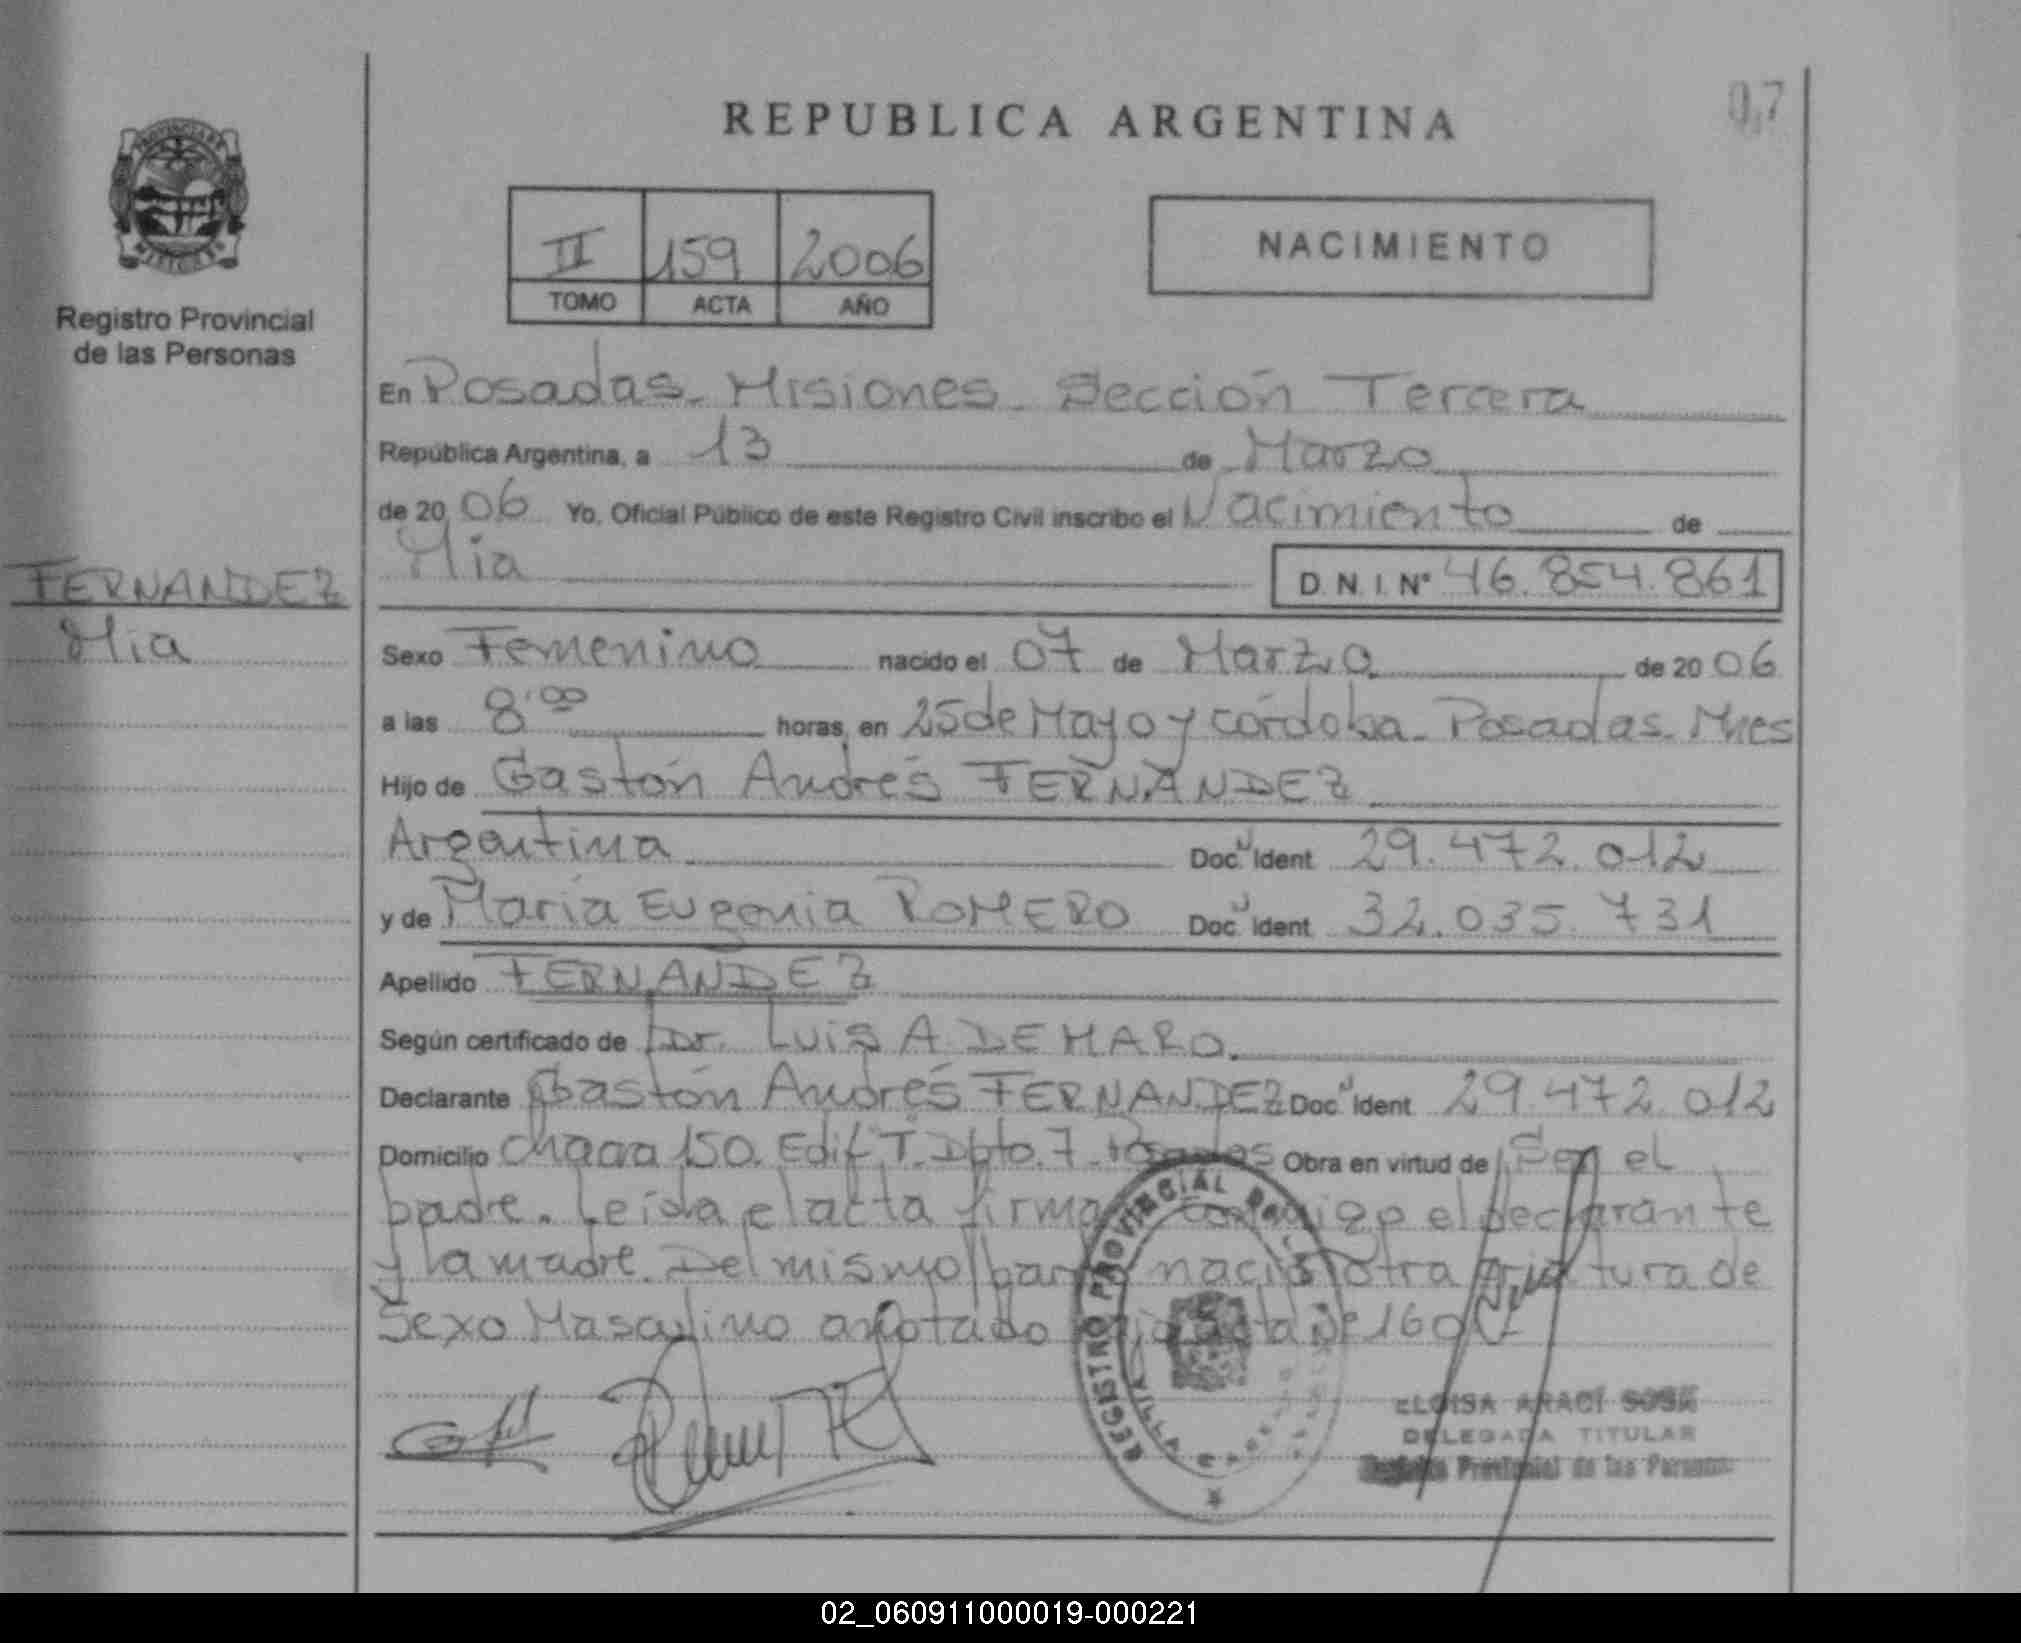 REPUBLICA ARGENTINA
07
PROVINCIA DE
MISIONES
Registro Provincial
de las Personas
II 159 2006
TOMO ACTA AÑO
NACIMIENTO
En Posadas - Misiones - Sección Tercera
República Argentina, a 13 de Marzo
de 20 06 Yo, Oficial Público de este Registro Civil inscribo el Nacimiento de
Mia D. N. I. N° 46.854.861
FERNANDEZ
Mia
Sexo Femenino nacido el 07 de Marzo de 20 06
a las 8:00 horas, en 25 de Mayo y córdoba - Posadas - Mnes
Hijo de Gastón Andrés FERNANDEZ
Argentina Doc. Ident 29.472.012
y de María Eugenia ROMERO Doc. Ident 32.035.731
Apellido FERNANDEZ
Según certificado de Dr. LUIS A DEMARO.
Declarante Gastón Andrés FERNANDEZ Doc. Ident 29.472.012
Domicilio chacra 150. Edif T. Dpto. 7 - Posadas Obra en virtud de Ser el
padre. Leída el acta firma conmigo el declarante
y la madre. Del mismo parto nació otra criatura de
Sexo Masculino anotado acta N° 160
REGISTRO PROVINCIAL DE LAS
VILLA CABELLO
ELOISA ARACÍ SOSA
DELEGADA TITULAR
Registro Provincial de las Personas
02_060911000019-000221